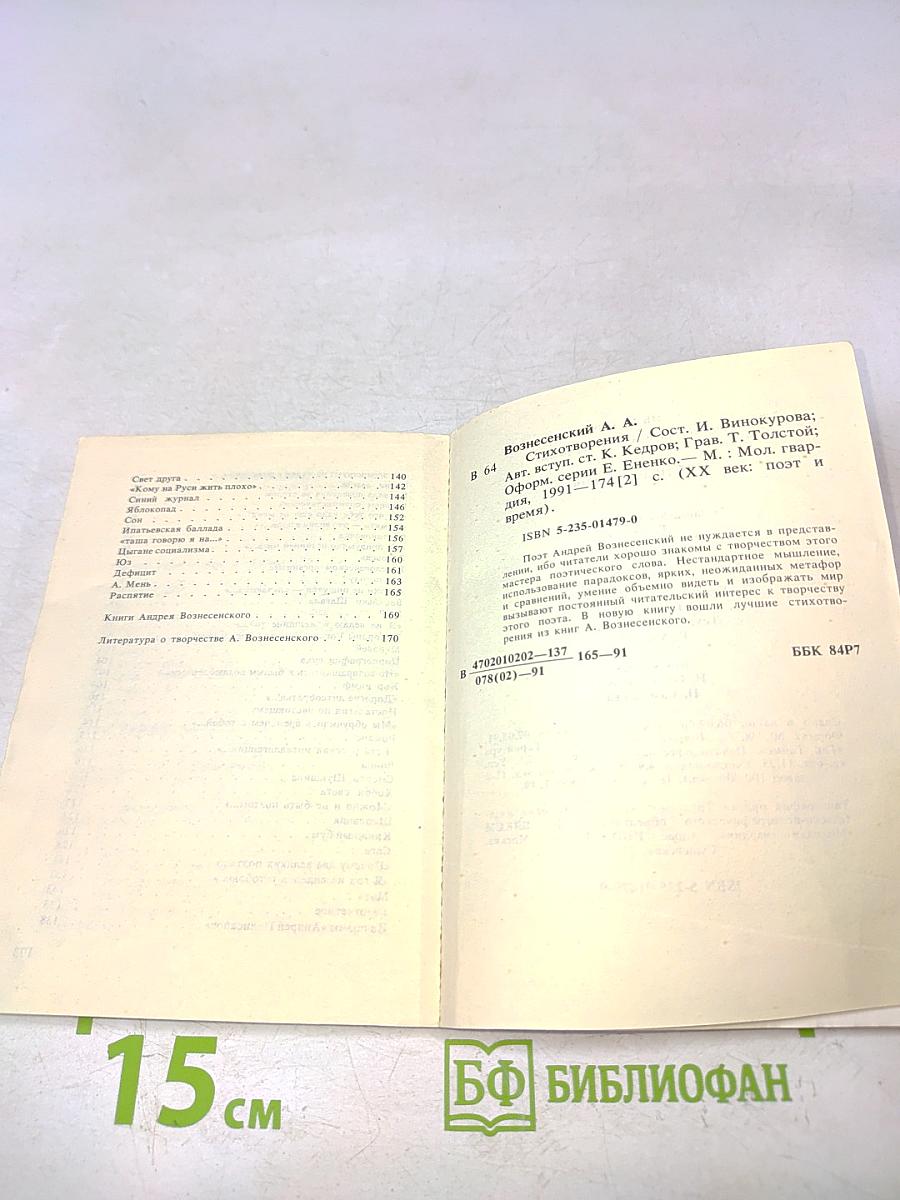 Свет друга . . . . . . . . . . . . . . . . . . 140
«Кому на Руси жить плохо» . . . . . . . . . . . 142
Синий журнал . . . . . . . . . . . . . . . . . 144
Яблокопад . . . . . . . . . . . . . . . . . . 146
Сон . . . . . . . . . . . . . . . . . . . . . 152
Ипатьевская баллада . . . . . . . . . . . . . . 154
«таша говорю я на...» . . . . . . . . . . . . . 156
Цыгане социализма . . . . . . . . . . . . . . . 157
Юз . . . . . . . . . . . . . . . . . . . . . . 160
Дефицит . . . . . . . . . . . . . . . . . . . 161
А. Мень . . . . . . . . . . . . . . . . . . . 163
Распятие . . . . . . . . . . . . . . . . . . . 165
Книги Андрея Вознесенского . . . . . . . . . . 169
Литература о творчестве А. Вознесенского . . . . 170
Вознесенский А. А.
В 64 Стихотворения / Сост. И. Винокурова;
Авт. вступ. ст. К. Кедров; Грав. Т. Толстой;
Оформ. серии Е. Ененко.— М. : Мол. гвар-
дия, 1991—174[2] с. (XX век: поэт и
время).
ISBN 5-235-01479-0
Поэт Андрей Вознесенский не нуждается в представ-
лении, ибо читатели хорошо знакомы с творчеством этого
мастера поэтического слова. Нестандартное мышление,
использование парадоксов, ярких, неожиданных метафор
и сравнений, умение объемно видеть и изображать мир
вызывают постоянный читательский интерес к творчеству
этого поэта. В новую книгу вошли лучшие стихотво-
рения из книг А. Вознесенского.
В 4702010202—137
078(02)—91 165—91 ББК 84Р7
15 см
БФ БИБЛИОФАН